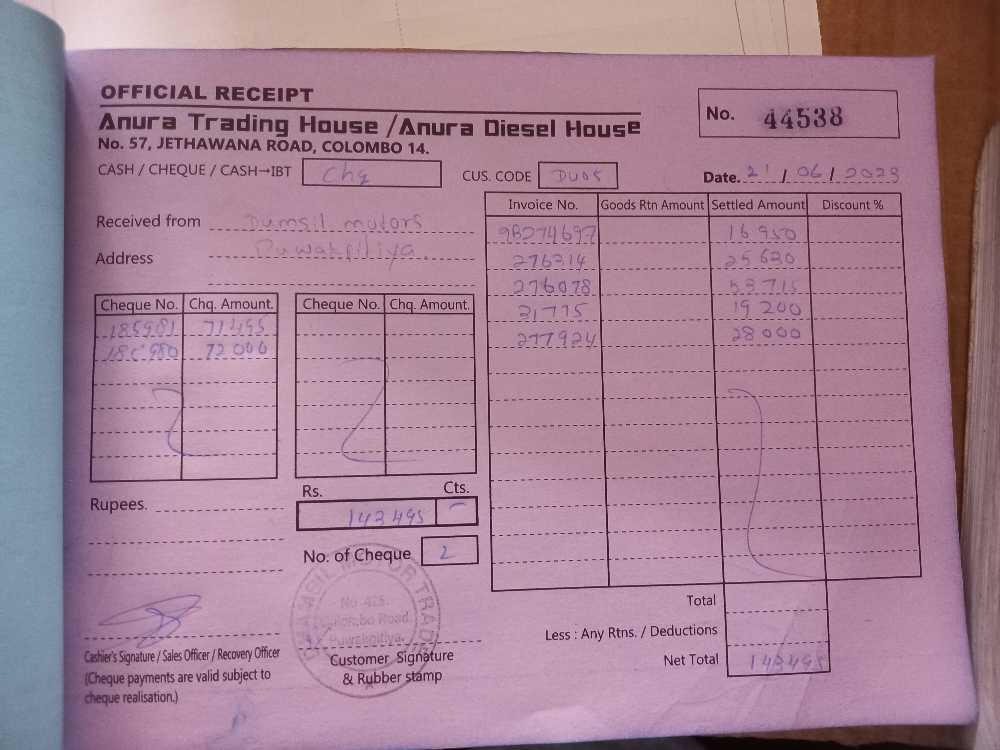 OFFICIAL RECEIPT
Anura Trading House / Anura Diesel House
No. 57, JETHAWANA ROAD, COLOMBO 14.
No. 44538
CASH / CHEQUE / CASH→IBT Chq
CUS. CODE DU05
Date. 21 / 06 / 2023
Received from Dumsil motors
Address Puwakpitiya
Cheque No. Chq. Amount.
185981 71495
185980 72000
Cheque No. Chq. Amount.
Rupees.
Rs. Cts.
143495 -
No. of Cheque 2
Invoice No. Goods Rtn Amount Settled Amount Discount %
9B274697 16950
276314 25630
276078 53715
31775 19200
277924 28000
Total
Less : Any Rtns. / Deductions
Net Total 143495
MOTOR TRADE
No 425,
Colombo Road,
Puwakpitiya.
Cashier's Signature / Sales Officer / Recovery Officer
(Cheque payments are valid subject to
cheque realisation.)
Customer Signature
& Rubber stamp